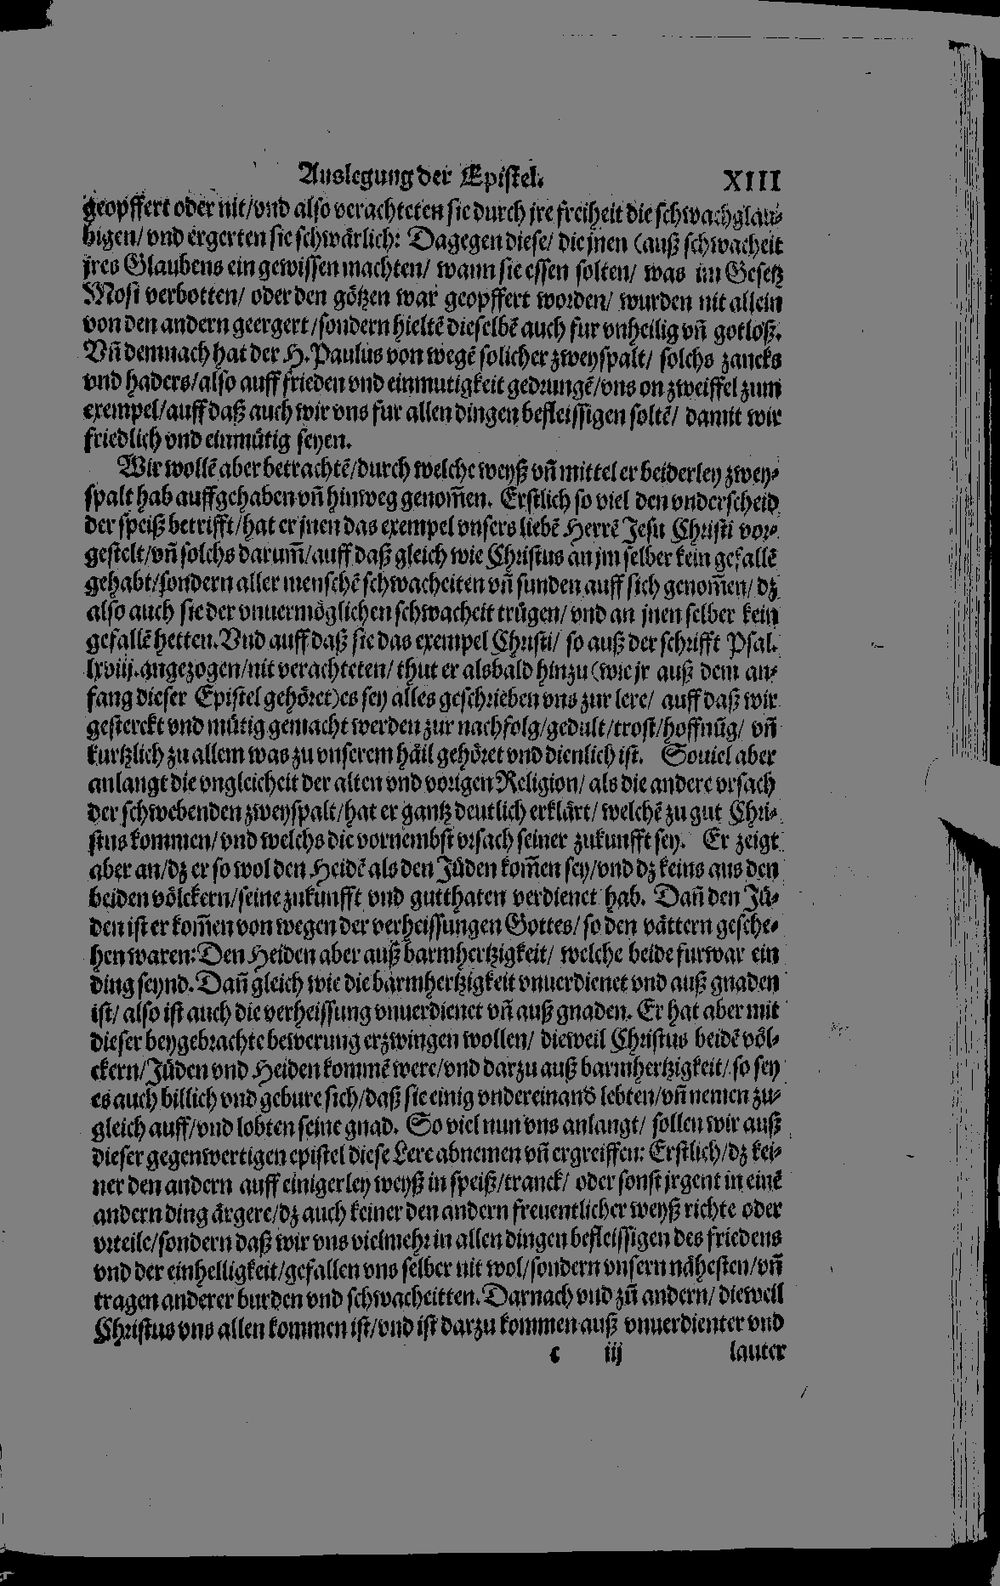 Auslegung der Epistel. XIII
geopffert oder nit/vnd also verachteten sie durch jre freiheit die schwachglau-
bigen/ vnd ergerten sie schwärlich: Dagegen diese/ die jnen (auß schwacheit
jres Glaubens ein gewissen machten/ wann sie essen solten/ was im Gesetz
Mosi verbotten/ oder den götzen war geopffert worden/ wurden nit allein
von den andern geergert/sondern hieltē dieselbē auch fur vnheilig vñ gotloß.
Vñ demnach hat der H. Paulus von wegē solicher zweyspalt/ solchs zancks
vnd haders/also auff frieden vnd einmutigkeit gedrungē/vns on zweiffel zum
exempel/auff daß auch wir vns fur allen dingen befleissigen soltē/ damit wir
friedlich vnd einmütig seyen.
Wir wollē aber betrachtē/durch welche weyß vñ mittel er beiderley zwey-
spalt hab auffgehaben vñ hinweg genom̄en. Erstlich so viel den vnderscheid
der speiß betrifft/hat er jnen das exempel vnsers liebē Herrē Jesu Christi vor-
gestelt/vñ solchs darum̄/auff daß gleich wie Christus an jm selber kein gefallē
gehabt/sondern aller menschē schwacheiten vñ sunden auff sich genom̄en/ dz
also auch sie der vnuermöglichen schwacheit trügen/ vnd an jnen selber kein
gefallē hetten. Vnd auff daß sie das exempel Christi/ so auß der schrifft Psal.
lxviij. angezogen/nit verachteten/ thut er alsbald hinzu (wie jr auß dem an-
fang dieser Epistel gehöret) es sey alles geschrieben vns zur lere/ auff daß wir
gesterckt vnd mütig gemacht werden zur nachfolg/gedult/trost/hoffnūg/ vñ
kurtzlich zu allem was zu vnserem häil gehöret vnd dienlich ist. Souiel aber
anlangt die vngleicheit der alten vnd vorigen Religion/ als die andere vrsach
der schwebenden zweyspalt/hat er gantz deutlich erklärt/ welchē zu gut Chri-
stus kommen/vnd welchs die vornembst vrsach seiner zukunfft sey. Er zeigt
aber an/dz er so wol den Heidē als den Jüden kom̄en sey/vnd dz keins aus den
beiden völckern/seine zukunfft vnd gutthaten verdienet hab. Dañ den Jü-
den ist er kom̄en von wegen der verheissungen Gottes/ so den vättern gesche-
hen waren: Den Heiden aber auß barmhertzigkeit/ welche beide furwar ein
ding seynd. Dañ gleich wie die barmhertzigkeit vnuerdienet vnd auß gnaden
ist/ also ist auch die verheissung vnuerdienet vñ auß gnaden. Er hat aber mit
dieser beygebrachte bewerung erzwingen wollen/ dieweil Christus beidē völ-
ckern/Jüden vnd Heiden kommē were/vnd darzu auß barmhertzigkeit/ so sey
es auch billich vnd gebure sich/daß sie einig vndereinand lebten/vñ nemen zu-
gleich auff/vnd lobten seine gnad. So viel nun vns anlangt/ sollen wir auß
dieser gegenwertigen epistel diese Lere abnemen vñ ergreiffen: Erstlich/dz kei-
ner den andern auff einigerley weyß in speiß/tranck/ oder sonst jrgent in einē
andern ding ärgere/dz auch keiner den andern freuentlicher weyß richte oder
vrteile/sondern daß wir vns vielmehr in allen dingen befleissigen des friedens
vnd der einhelligkeit/gefallen vns selber nit wol/sondern vnsern nähesten/vñ
tragen anderer burden vnd schwacheitten. Darnach vnd zū andern/ dieweil
Christus vns allen kommen ist/vnd ist darzu kommen auß vnuerdienter vnd
c iij lauter